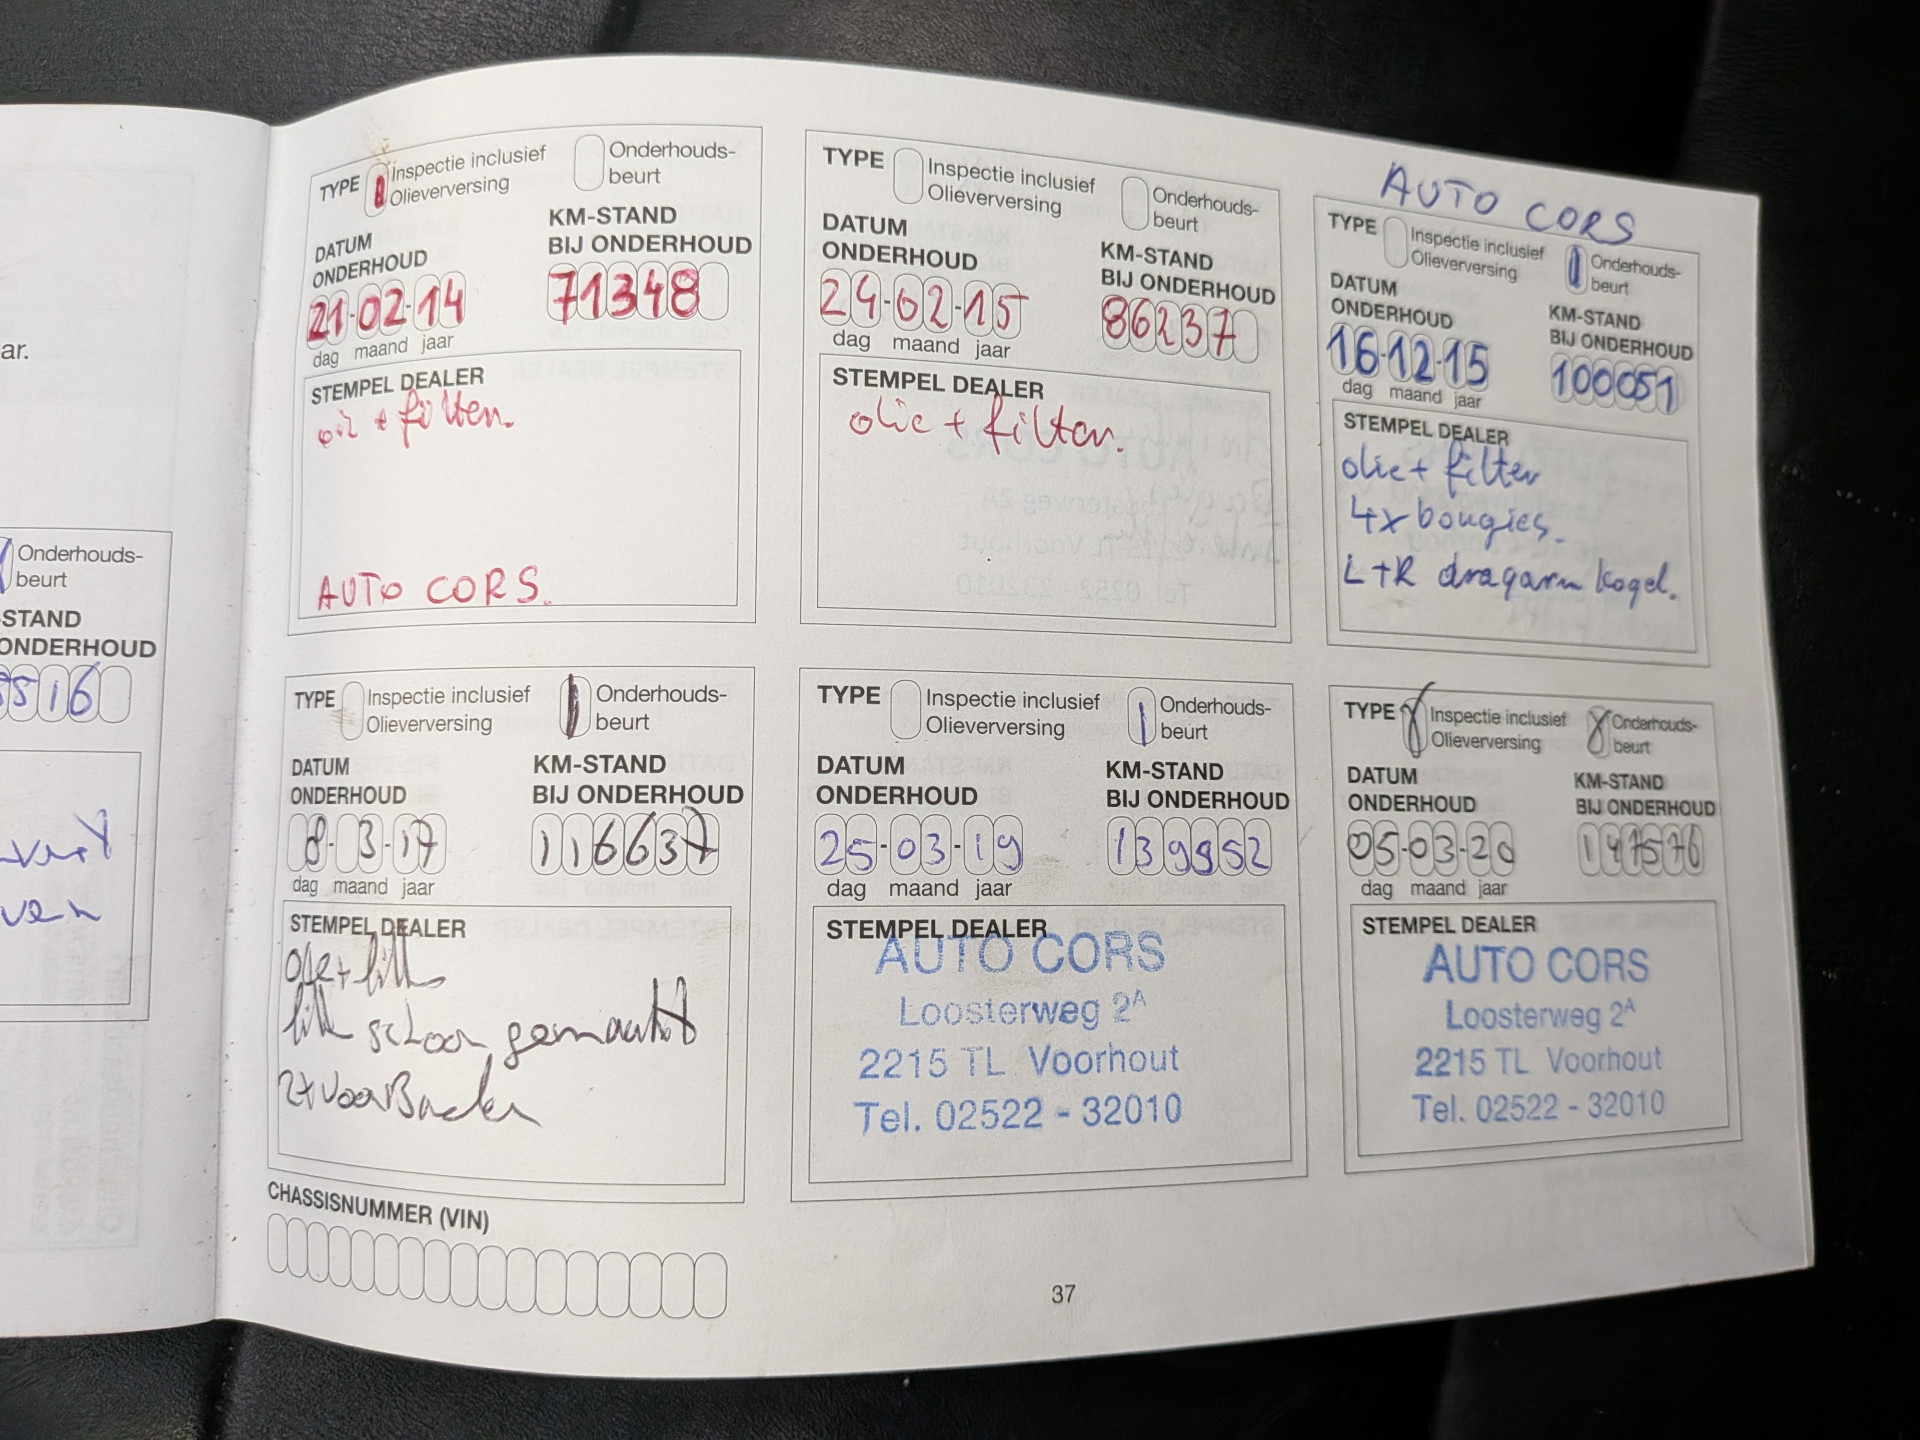 ar.
Onderhouds-
beurt
-STAND
ONDERHOUD
516
ven
TYPE Inspectie inclusief Olieverversing
Onderhouds-
beurt
DATUM
ONDERHOUD
KM-STAND
BIJ ONDERHOUD
21-02-14
71348
dag maand jaar
STEMPEL DEALER
filter.
AUTO CORS.
TYPE Inspectie inclusief
Olieverversing
Onderhouds-
beurt
DATUM
ONDERHOUD
KM-STAND
BIJ ONDERHOUD
24-02-15
86237
dag maand jaar
STEMPEL DEALER
olie + filter.
AUTO CORS
TYPE Inspectie inclusief
Olieverversing
Onderhouds-
beurt
DATUM
ONDERHOUD
KM-STAND
BIJ ONDERHOUD
16-12-15
100051
dag maand jaar
STEMPEL DEALER
olie + filter
4x bougies.
L+R dragarm kogel.
TYPE Inspectie inclusief
Olieverversing
Onderhouds-
beurt
DATUM
ONDERHOUD
KM-STAND
BIJ ONDERHOUD
8-3-17
116637
dag maand jaar
STEMPEL DEALER
schoon gemaakt
2x
TYPE Inspectie inclusief
Olieverversing
Onderhouds-
beurt
DATUM
ONDERHOUD
KM-STAND
BIJ ONDERHOUD
25-03-19
139952
dag maand jaar
STEMPEL DEALER
AUTO CORS
Loosterweg 2A
2215 TL Voorhout
Tel. 02522 - 32010
TYPE Inspectie inclusief
Olieverversing
Onderhouds-
beurt
DATUM
ONDERHOUD
KM-STAND
BIJ ONDERHOUD
05-03-20
147576
dag maand jaar
STEMPEL DEALER
AUTO CORS
Loosterweg 2A
2215 TL Voorhout
Tel. 02522 - 32010
CHASSISNUMMER (VIN)
37